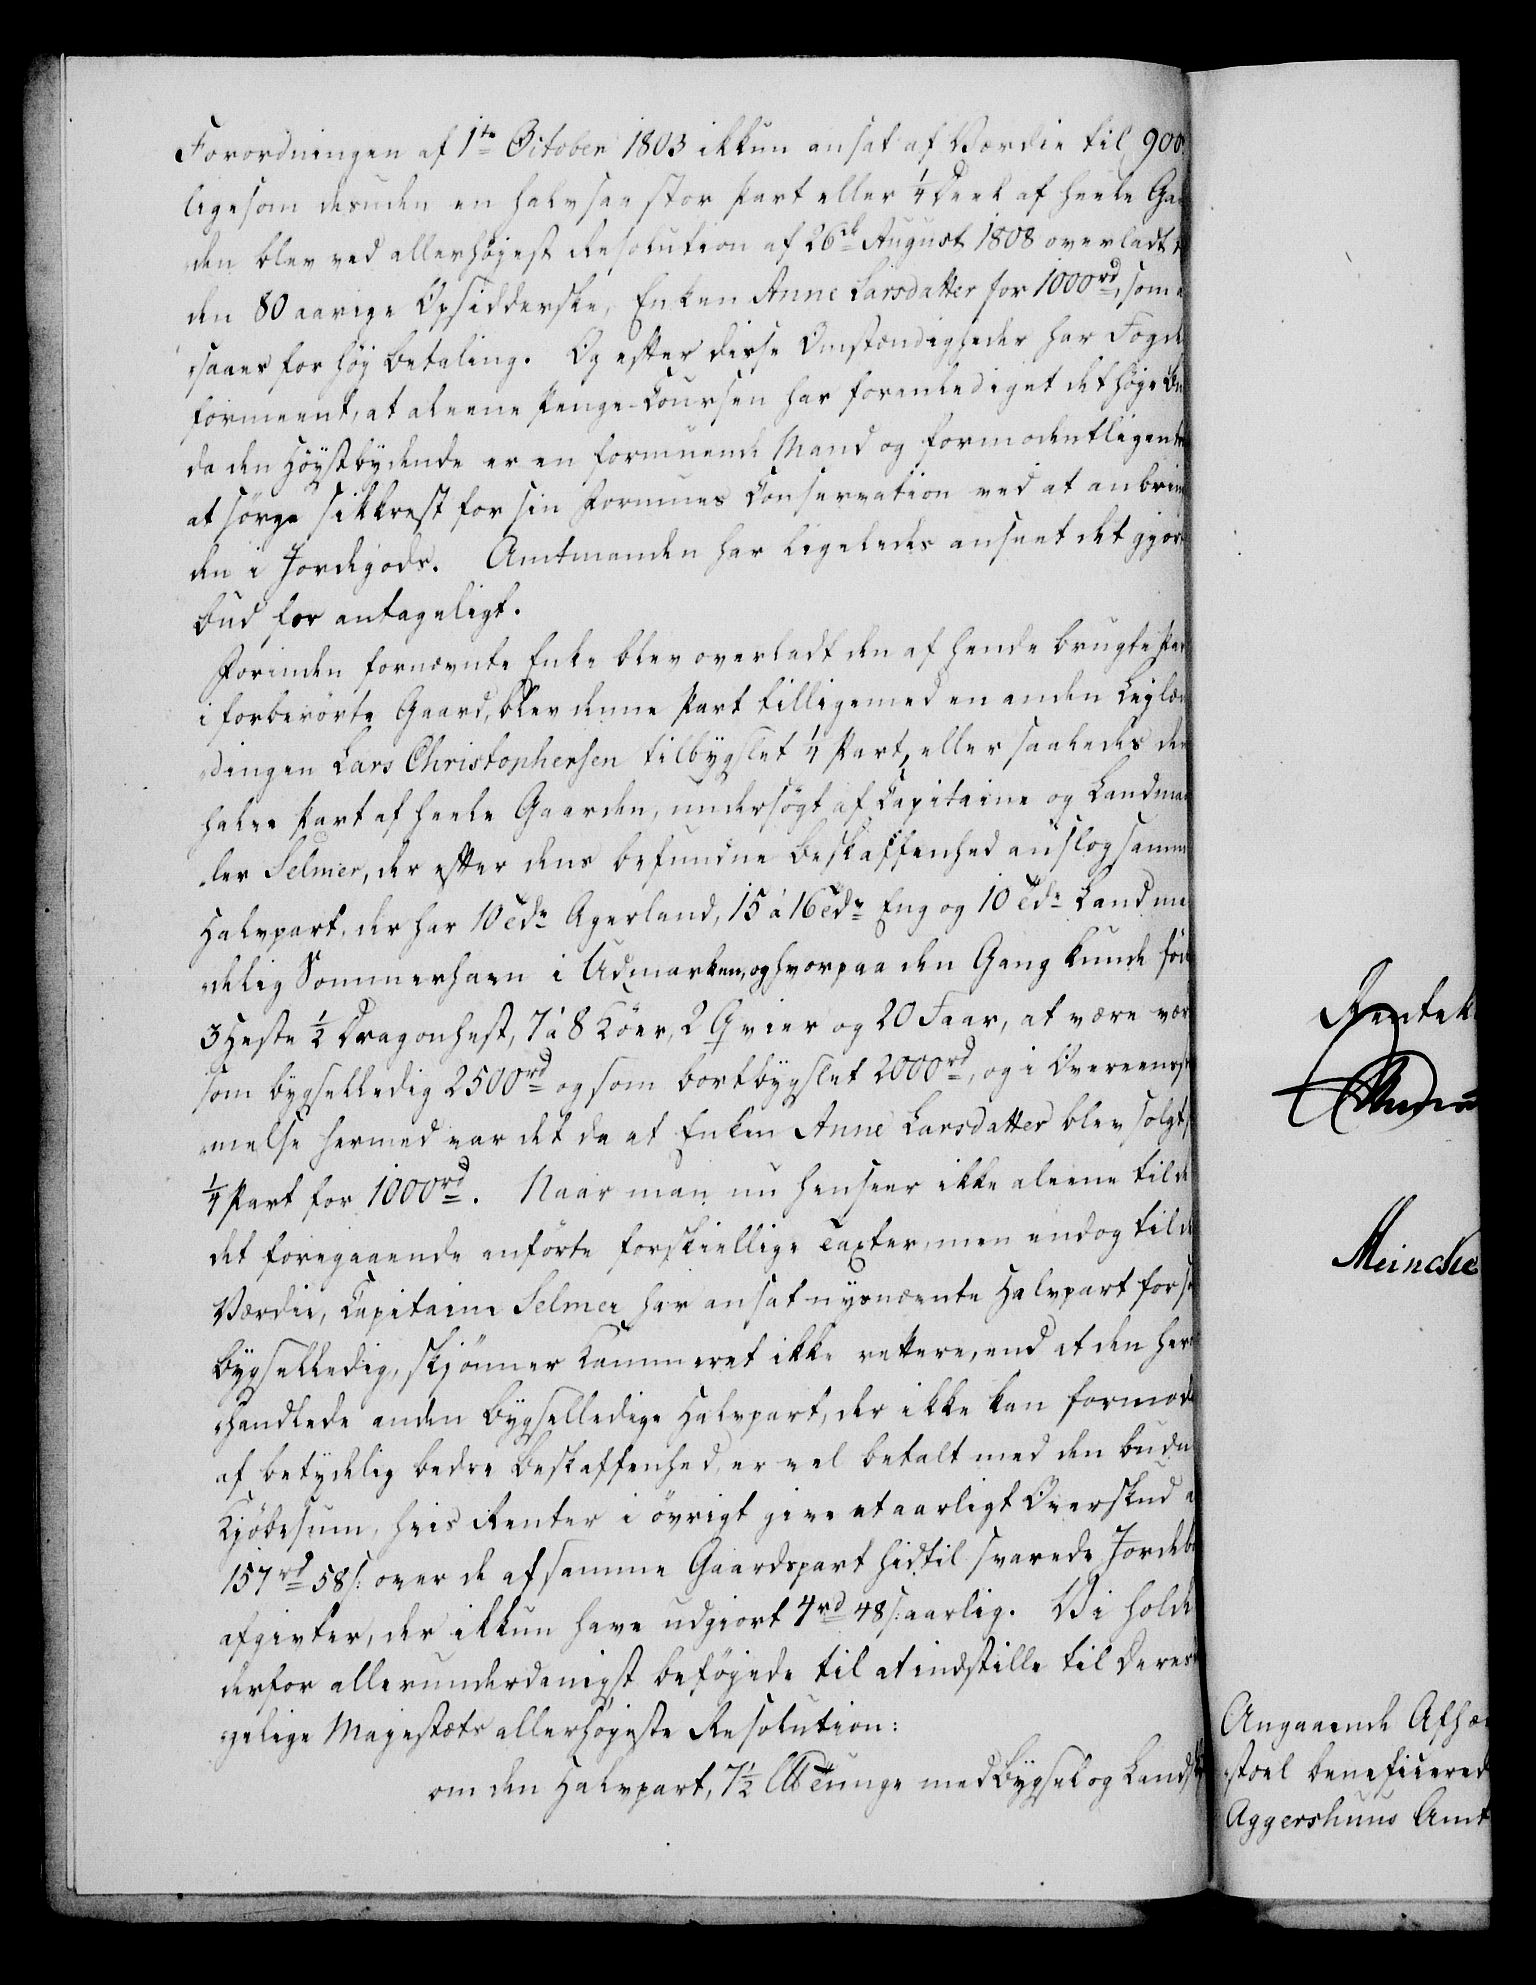 Forordningen af 1te October 1803 ikkun ansat af Værdie til 900
ligesom desuden en halvsaa stor Part eller 1/4 Deel af heele Gaa
den blev ved allerhøjest Resolution af 26de August 1808 overladt t
den 80 aarige Opsidderske, Enken Anne Larsdatter for 1000rd, som a
saaes for høy Betaling. Og efter disse Omstændigheder har Fogde
formeent, at aleene Penge-Coursen har foranlediget det høge Bu
da den Høystbydende er en formuende Mand og formodentligen
at sørge sikkrest for sin Formues Conservation ved at anbrin
den i Jordegods. Amtmanden har ligeledes anseet det gjor
Bud for antageligt.
Forinden fornævnte Enke blev overladt den af hende brugte Par
i forberørte Gaard, blev denne Part tilligemed en anden Leylæn
dingen Lars Christophersen tilbygslet 1/4 Part, eller saaledes den
halve Part af heele Gaarden, undersøgt af Capitaine og Landmaa
ler Selmer, der efter dens befundne Beskaffenhed anslog samm
Halvpart, der har 10 Tdr Agerland, 15 à 16 Tdr Eng og 10 Tdr Land ma
delig Sommerhavn i Udmarken, og hvorpaa den Gang kunde fød
3 Heste 1/2 Dragonhest, 7 à 8 Køer, 2 Qvier og 20 Faar, at være vær
som bygselledig 2500rd og som bortbygslet 2000rd, og i Overeenss
melse hermed var det da at Enken Anne Larsdatter blev solgt
1/4 Part for 1000rd. Naar man nu henseer ikke aleene til de
det foregaaende anførte forskiellige Taxter, men endog til d
Værdie, Capitaine Selmer har ansat nysnævnte Halvpart for s
bygselledig, skjønner Kammeret ikke rettere, end at den her
handlede anden bygselledige Halvpart, der ikke kan formod
af betydelig bedre Beskaffenhed, er vel betalt med den budn
Kjøbesum, hvis Renter i øvrigt give et aarligt Overskud a
157rd 58s: over de af samme Gaardspart hidtil svarede Jordeb
afgivter, der ikkun have udgiort 4rd 48s: aarlig. Vi holde
derfor allerunderdanigst beføjede til at indstille til Deres
gelige Majestæts allerhøjeste Resolution:
om den Halvpart, 7 1/2 Lb Tunge med Bygsel og Lands
Rentek
Meincke
Angaaende Afhæ
stoel beneficered
Aggershuus Amt